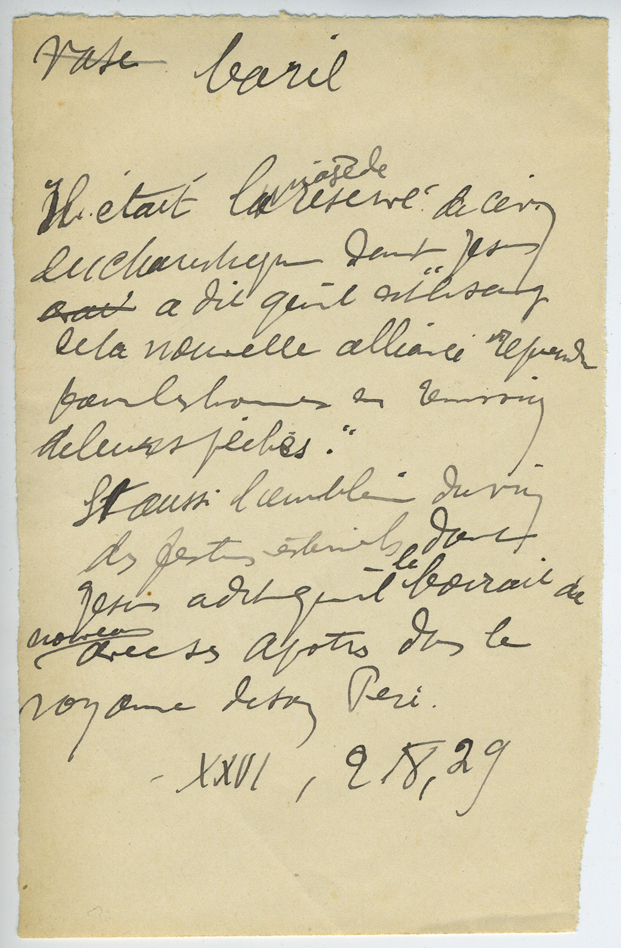 vase baril
Il était la réserve de ce vin
eucharistique dont Jésus
avait a dit qu'il est "le sang
de la nouvelle alliance répandu
pour les hommes en rémission
de leurs péchés."
Et aussi l'emblème du vin
des festins éternels dont
Jésus a dit qu'il le boirait de
nouveau avec ses apôtres dans le
royaume de son Père.
- XXVI, 28, 29